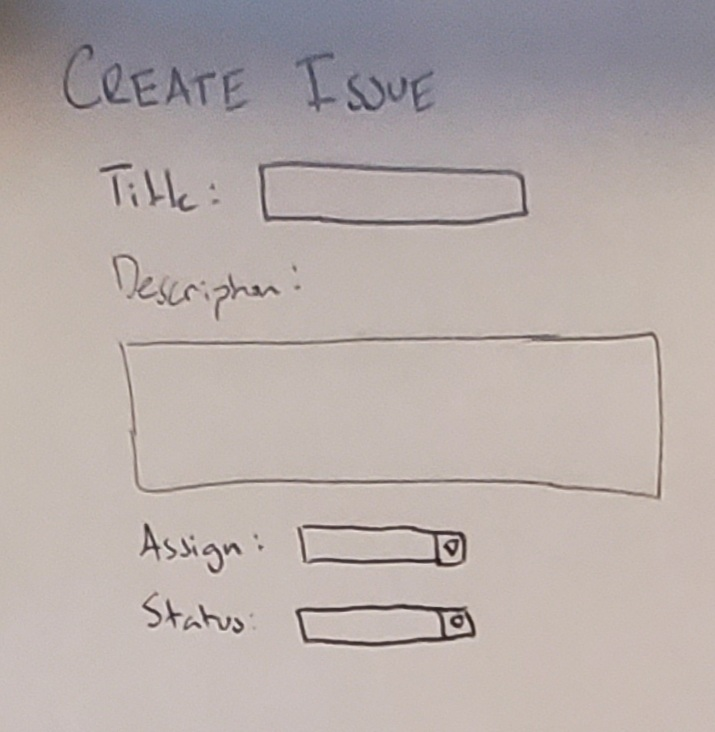 CREATE ISSUE
Title:
Description:
Assign:
Status: